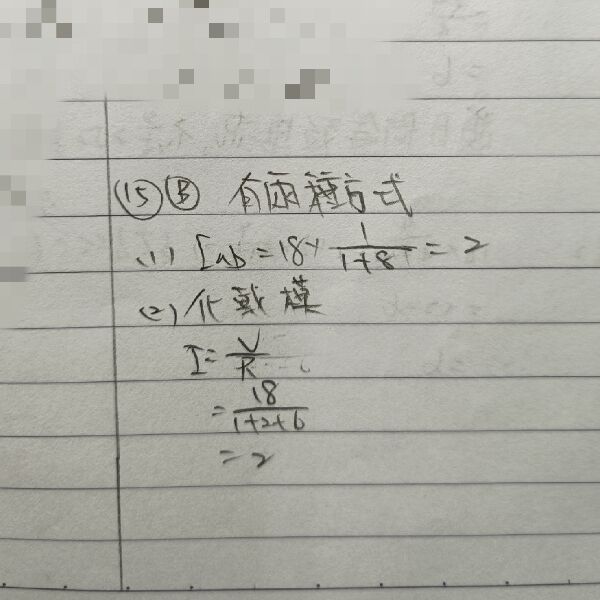 ⑮ Ⓑ 有兩種方式
(1) Iab = 18 × 1/(1+8) = 2
(2) 化戴模
I = V/R
= 18/(1+2+6)
= 2